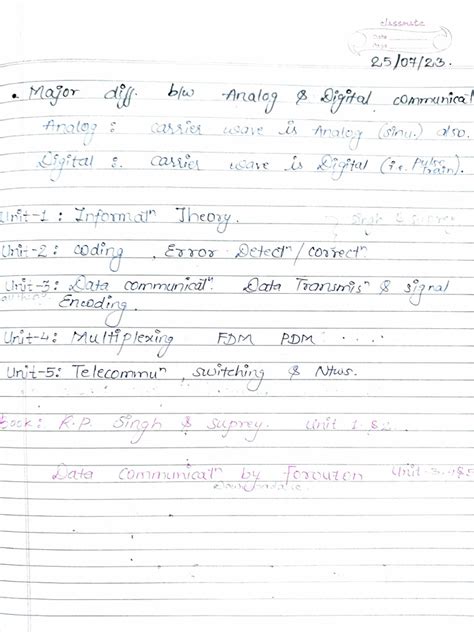 classmate
Date
Page
25/07/23.
• Major diff. b/w Analog & Digital communical
Analog : carrier wave is Analog (sinu.) also.
Digital : carrier wave is Digital (i.e. Pulse train).
Unit-1 : Informatⁿ Theory.
Unit-2 : coding , Error Detectⁿ/correctⁿ
Unit-3: Data communicatⁿ. Data Transmisⁿ & signal
Encoding.
Unit-4: Multiplexing FDM PDM ....
Unit-5: Telecommuⁿ, switching & Ntws.
Book: R.P. Singh & suprey. Unit 1 &
Data communicatⁿ by Forouzon Unit-3,4&5